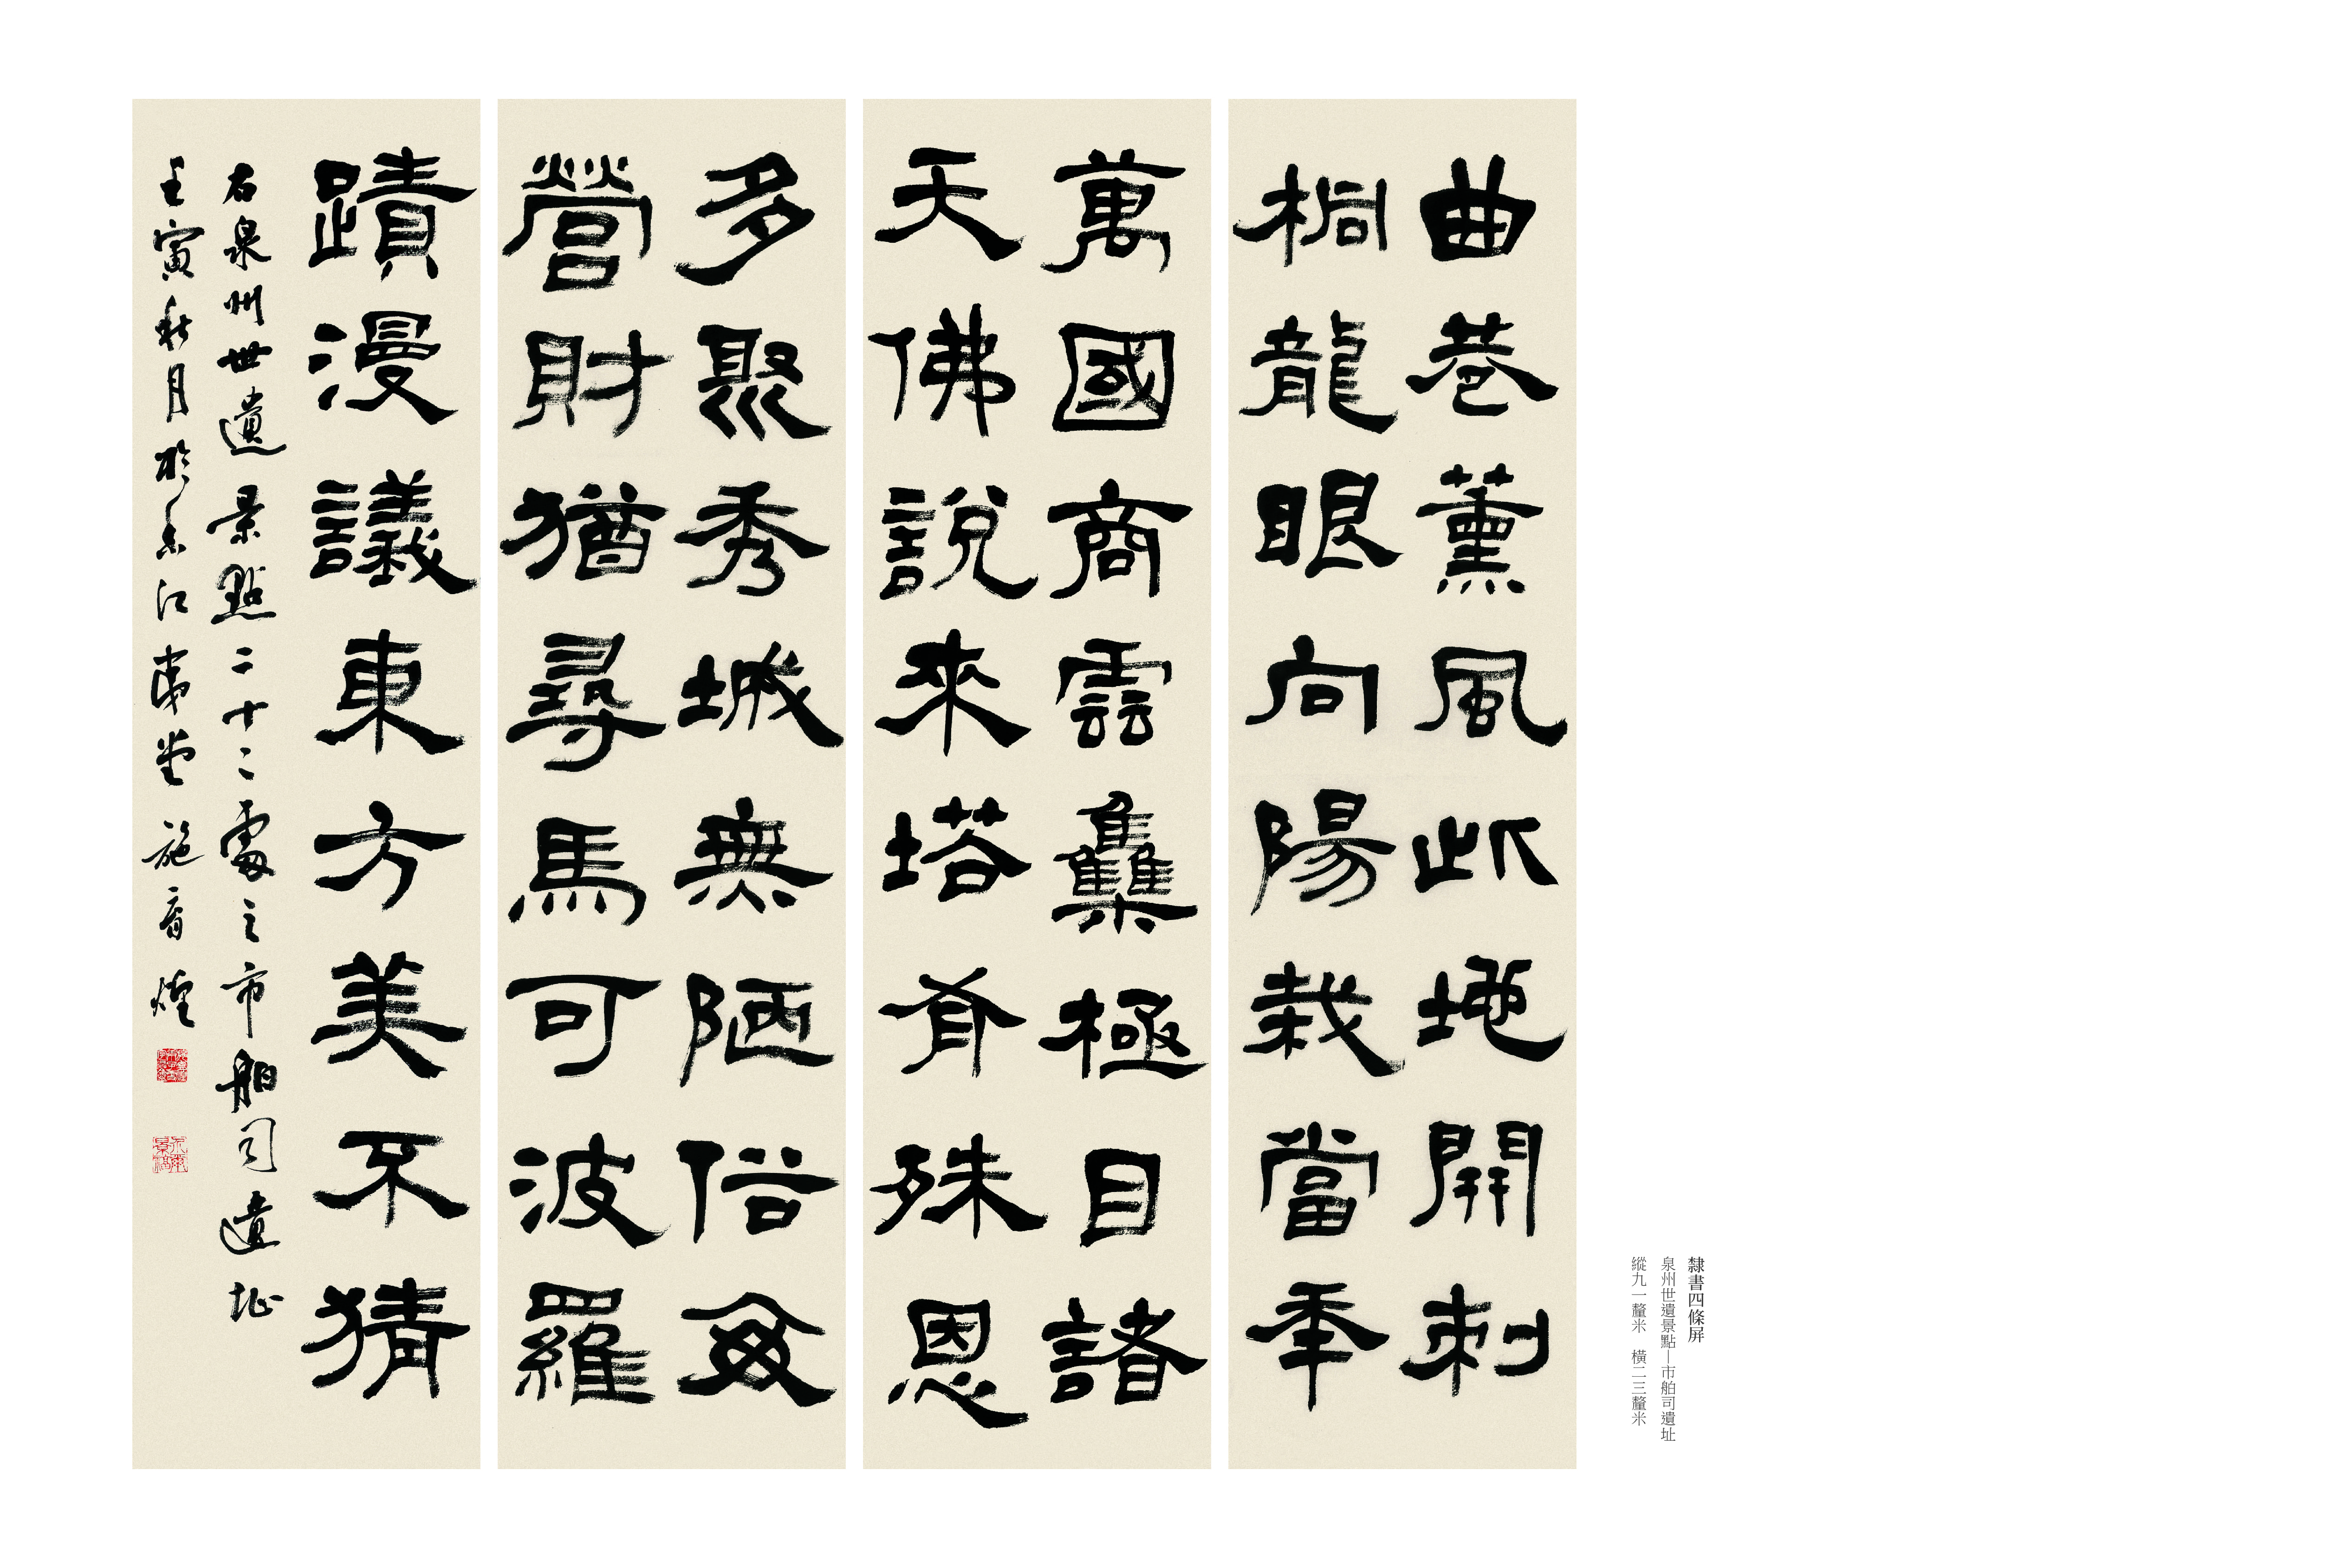 隸書四條屏
泉州世遺景點—市舶司遺址
縱九一釐米 橫二三釐米
曲巷薰風此地開刺
桐龍眼向陽栽當秊
萬國商雲雧極目諸
天佛說來塔有殊恩
多聚秀城無陋俗
營財猶尋馬可波羅
蹟漫議東方美不猜
右泉州世遺景點二十二處之市舶司遺址
壬寅秋月於香江堂施育煌